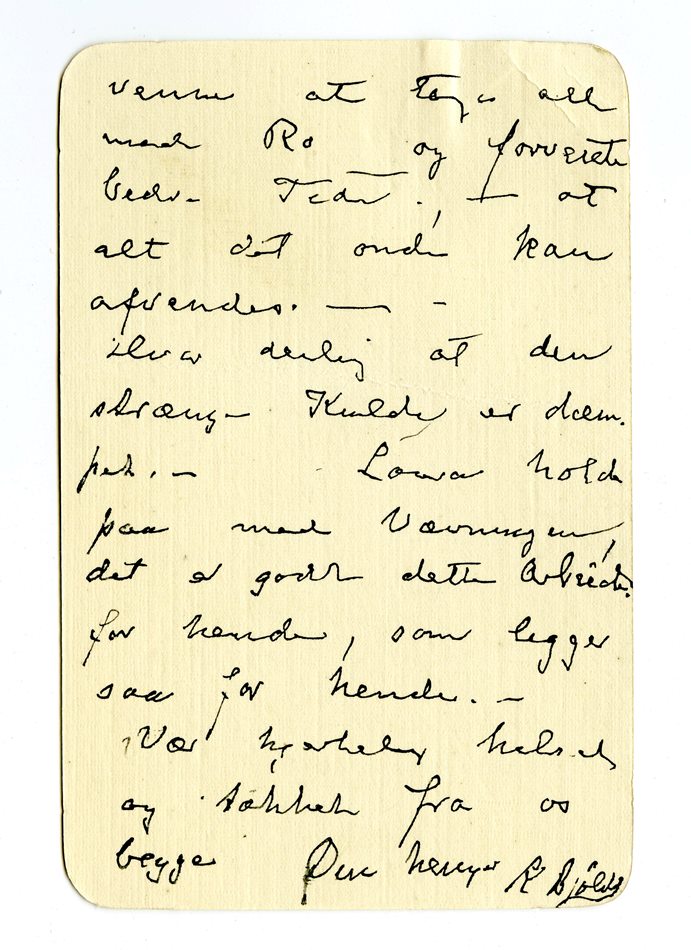 venne at tage alt
med Ro og forvente
bedre Tider, — at
alt det onde kan
afvendes. — -
Hvor deilig at den
strænge Kulde er dæm-
pet. — Laura holde
paa med Vævningen,
det er godt dette Arbeide
for hende, som ligger
saa for hende. —
Vær hjertelig hilset
og takket fra os
begge Din hengivne K Bjölv